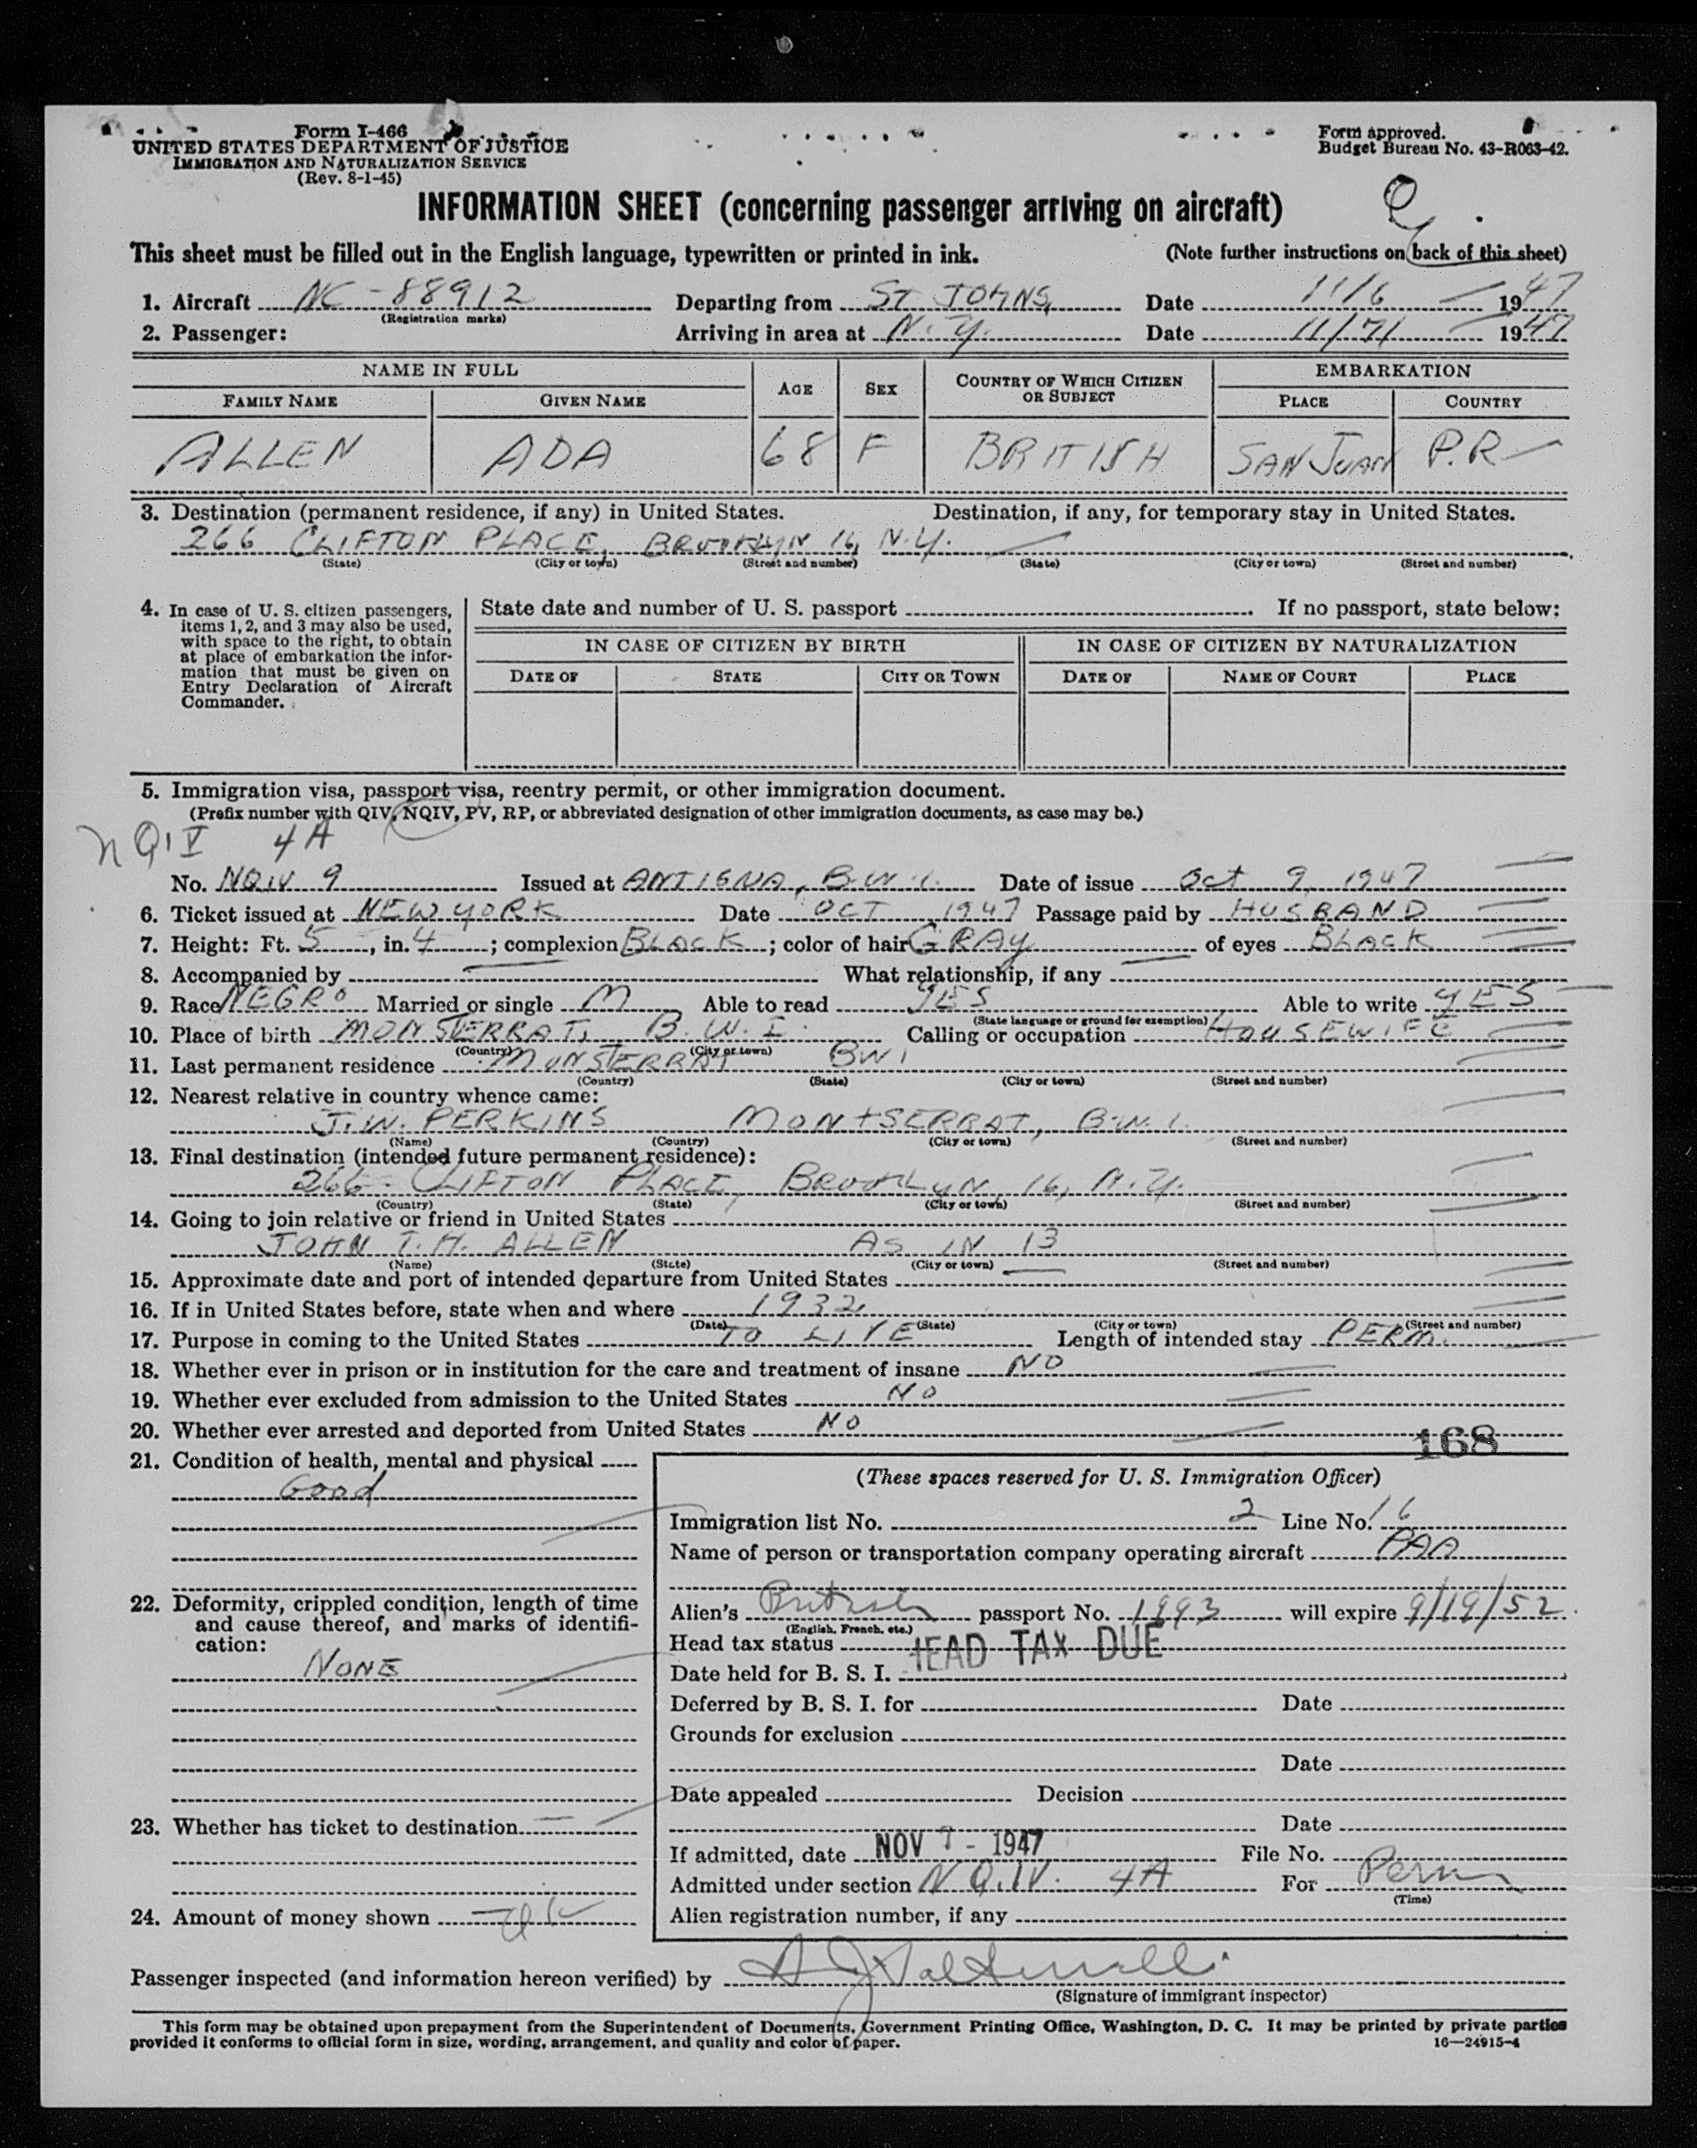 Form I-466
UNITED STATES DEPARTMENT OF JUSTICE
IMMIGRATION AND NATURALIZATION SERVICE
(Rev. 8-1-45)
Form approved.
Budget Bureau No. 43-R063-42.
INFORMATION SHEET (concerning passenger arriving on aircraft)
This sheet must be filled out in the English language, typewritten or printed in ink. (Note further instructions on back of this sheet)
1. Aircraft NC-88912 Departing from ST JOHNS, Date 11/6 1947
(Registration marks)
2. Passenger: Arriving in area at N.Y. Date 11/7/ 1947
NAME IN FULL AGE SEX COUNTRY OF WHICH CITIZEN OR SUBJECT EMBARKATION
FAMILY NAME GIVEN NAME PLACE COUNTRY
ALLEN ADA 68 F BRITISH SAN JUAN P.R.
3. Destination (permanent residence, if any) in United States. Destination, if any, for temporary stay in United States.
266 CLIFTON PLACE, BROOKLYN 16, N.Y.
(State) (City or town) (Street and number) (State) (City or town) (Street and number)
4. In case of U. S. citizen passengers, items 1, 2, and 3 may also be used, with space to the right, to obtain at place of embarkation the information that must be given on Entry Declaration of Aircraft Commander.
State date and number of U. S. passport If no passport, state below:
IN CASE OF CITIZEN BY BIRTH IN CASE OF CITIZEN BY NATURALIZATION
DATE OF STATE CITY OR TOWN DATE OF NAME OF COURT PLACE
5. Immigration visa, passport visa, reentry permit, or other immigration document.
(Prefix number with QIV, NQIV, PV, RP, or abbreviated designation of other immigration documents, as case may be.)
NQIV 4A
No. NQIV 9 Issued at ANTIGUA, B.W.I. Date of issue Oct 9, 1947
6. Ticket issued at NEW YORK Date OCT 1947 Passage paid by HUSBAND
7. Height: Ft. 5, in. 4; complexion BLACK; color of hair GRAY of eyes BLACK
8. Accompanied by What relationship, if any
9. Race NEGRO Married or single M Able to read YES Able to write YES
(State language or ground for exemption)
10. Place of birth MONSTERRAT, B.W.I. Calling or occupation HOUSEWIFE
(Country) (City or town)
11. Last permanent residence MONSTERRAT BWI
(Country) (State) (City or town) (Street and number)
12. Nearest relative in country whence came:
J.W. PERKINS MONTSERRAT, B.W.I.
(Name) (Country) (City or town) (Street and number)
13. Final destination (intended future permanent residence):
266 CLIFTON PLACE, BROOKLYN, 16, N.Y.
(Country) (State) (City or town) (Street and number)
14. Going to join relative or friend in United States
JOHN T.H. ALLEN AS IN 13
(Name) (State) (City or town) (Street and number)
15. Approximate date and port of intended departure from United States
16. If in United States before, state when and where 1932
(Date) (State) (City or town) (Street and number)
17. Purpose in coming to the United States TO LIVE Length of intended stay PERM.
18. Whether ever in prison or in institution for the care and treatment of insane NO
19. Whether ever excluded from admission to the United States NO
20. Whether ever arrested and deported from United States NO
168
21. Condition of health, mental and physical
Good
22. Deformity, crippled condition, length of time and cause thereof, and marks of identification:
NONE
23. Whether has ticket to destination
24. Amount of money shown
(These spaces reserved for U. S. Immigration Officer)
Immigration list No. 2 Line No. 16
Name of person or transportation company operating aircraft PAA
Alien's British passport No. 1993 will expire 9/19/52
(English, French, etc.)
Head tax status HEAD TAX DUE
Date held for B. S. I.
Deferred by B. S. I. for Date
Grounds for exclusion
Date
Date appealed Decision
Date
If admitted, date NOV 7 - 1947 File No.
Admitted under section NQ.IV. 4A For Perm
(Time)
Alien registration number, if any
Passenger inspected (and information hereon verified) by
(Signature of immigrant inspector)
This form may be obtained upon prepayment from the Superintendent of Documents, Government Printing Office, Washington, D. C. It may be printed by private parties
provided it conforms to official form in size, wording, arrangement, and quality and color of paper. 16—24915-4